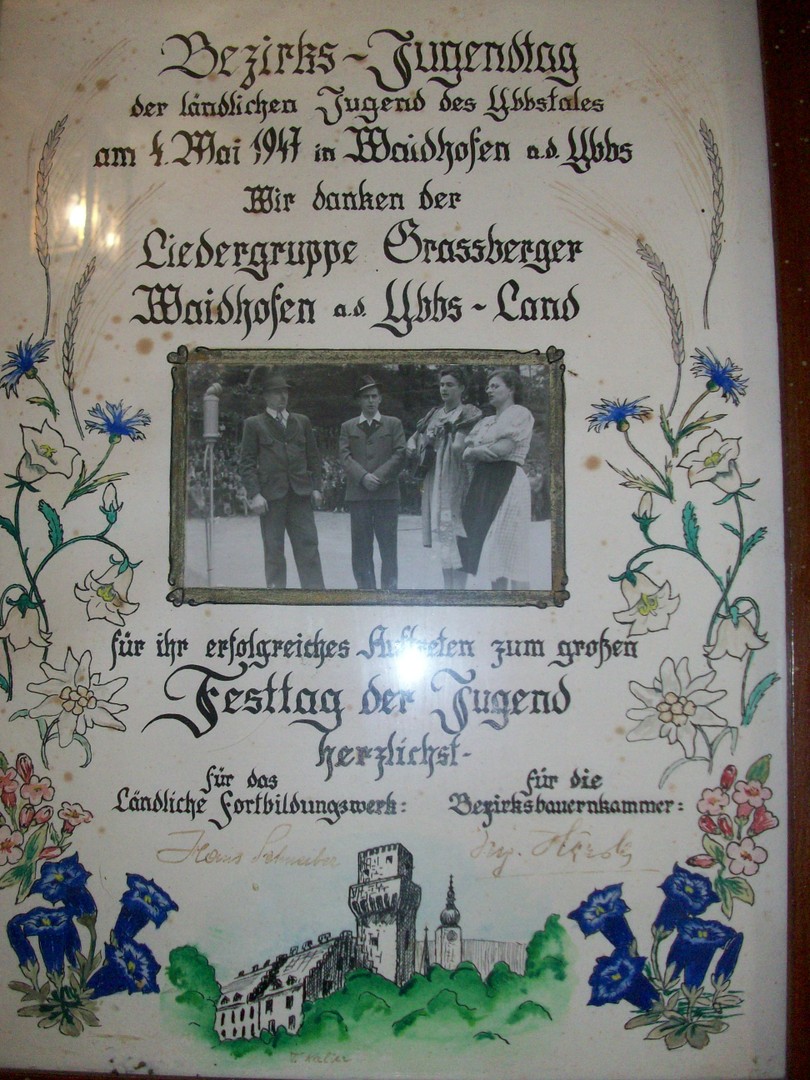 Bezirks-Jugendtag
der ländlichen Jugend des Ybbstales
am 4. Mai 1947 in Waidhofen a.d. Ybbs
Wir danken der
Liedergruppe Grassberger
Waidhofen a.d. Ybbs - Land
für ihr erfolgreiches Auftreten zum großen
Festtag der Jugend
herzlichst-
für das
Ländliche Fortbildungswerk:
für die
Bezirksbauernkammer:
Hans Schneiber
Ing.